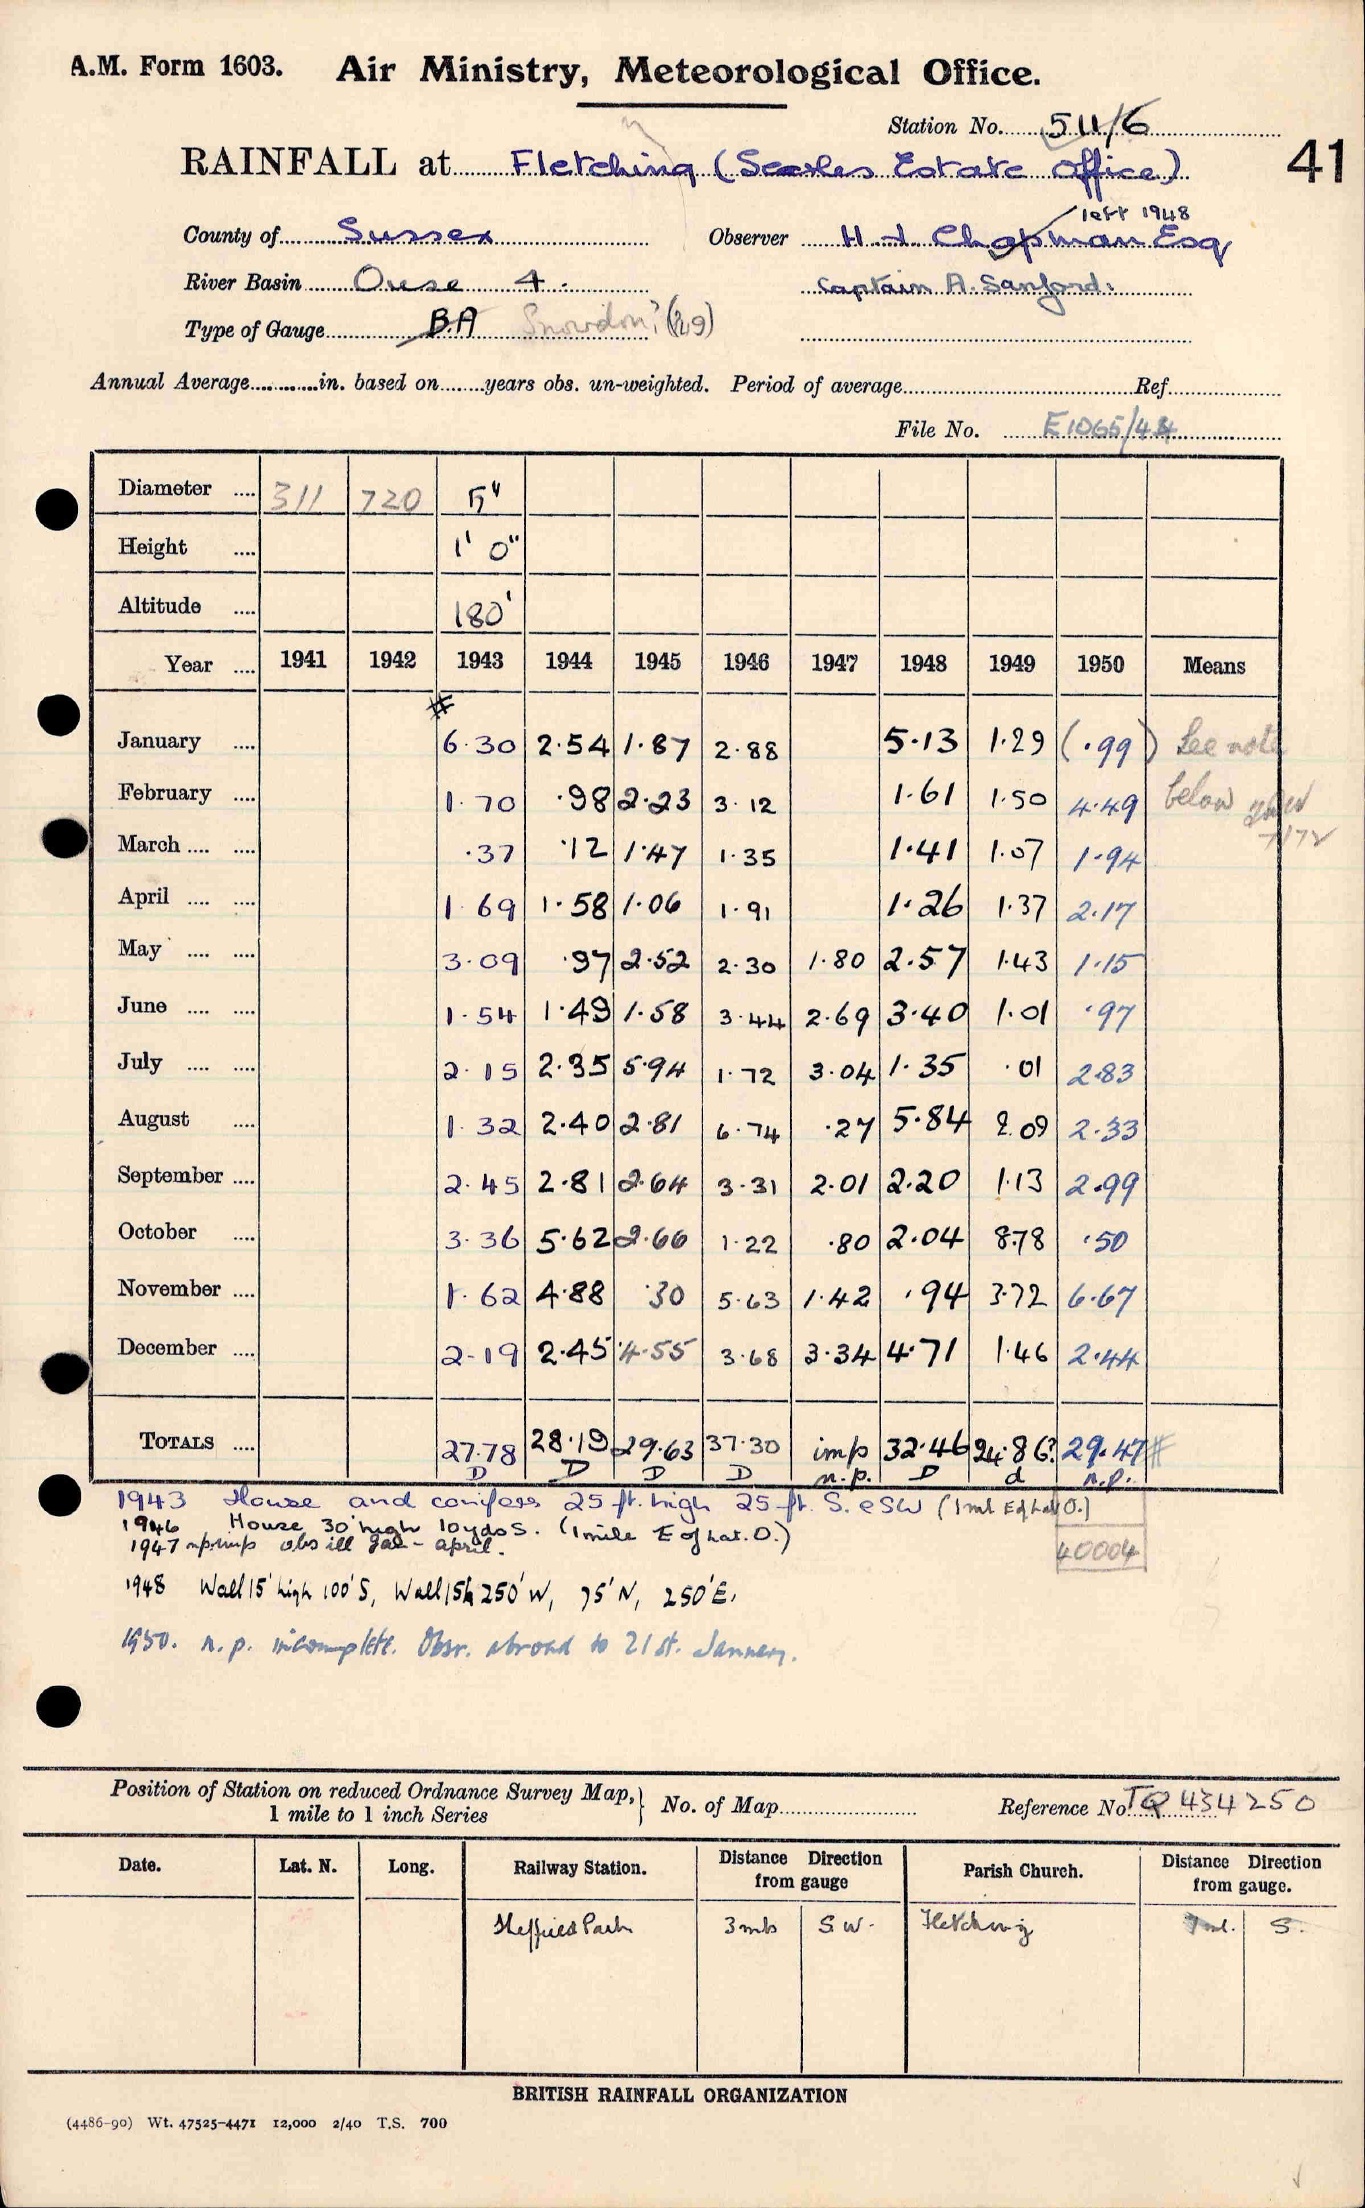 A.M. Form 1603. Air Ministry, Meteorological Office.
Station No. 511/6
41
RAINFALL at Fletching (Searles Estate Office)
left 1948
County of Sussex Observer H. J. Chapman Esq
River Basin Ouse 4. Captain A. Sanford.
Type of Gauge B.A Snowdon? (R29)
Annual Average in. based on years obs. un-weighted. Period of average Ref.
File No. E1065/44
Diameter .... 311 720 5"
Height .... 1' 0"
Altitude .... 180'
Year .... 1941 1942 1943 1944 1945 1946 1947 1948 1949 1950 Means
#
January .... 6.30 2.54 1.87 2.88 5.13 1.29 (.99) See note
February .... 1.70 .98 2.23 3.12 1.61 1.50 4.49 below
7/72
March .... .... .37 .12 1.47 1.35 1.41 1.07 1.94
April .... .... 1.69 1.58 1.06 1.91 1.26 1.37 2.17
May .... .... 3.09 .97 2.52 2.30 1.80 2.57 1.43 1.15
June .... .... 1.54 1.49 1.58 3.44 2.69 3.40 1.01 .97
July .... .... 2.15 2.35 5.94 1.72 3.04 1.35 .01 2.83
August .... 1.32 2.40 2.81 6.74 .27 5.84 2.09 2.33
September .... 2.45 2.81 2.64 3.31 2.01 2.20 1.13 2.99
October .... 3.36 5.62 2.66 1.22 .80 2.04 8.78 .50
November .... 1.62 4.88 .30 5.63 1.42 .94 3.72 6.67
December .... 2.19 2.45 4.55 3.68 3.34 4.71 1.46 2.44
TOTALS .... 27.78 28.19 29.63 37.30 imp 32.46 24.86? 29.47 #
D D D D n.p. D d n.p.
1943 House and conifers 25 ft. high 25 ft. S. & SW (1 ml E of Lat O.)
1946 House 30' high 10 yds S. (1 mile E of Lat. O.)
1947 n.p. imp obs ill Jan - April.
40004
1948 Wall 15' high 100' S, Wall 15h 250' W, 75' N, 250' E.
1950. n.p. incomplete. Obsr. abroad to 21st. January.
Position of Station on reduced Ordnance Survey Map, 1 mile to 1 inch Series No. of Map Reference No. TQ 434250
Date. Lat. N. Long. Railway Station. Distance Direction from gauge Parish Church. Distance Direction from gauge.
Sheffield Park 3 mls S.W. Fletching 1 ml. S.
BRITISH RAINFALL ORGANIZATION
(4486-90) Wt. 47525-4471 12,000 2/40 T.S. 700